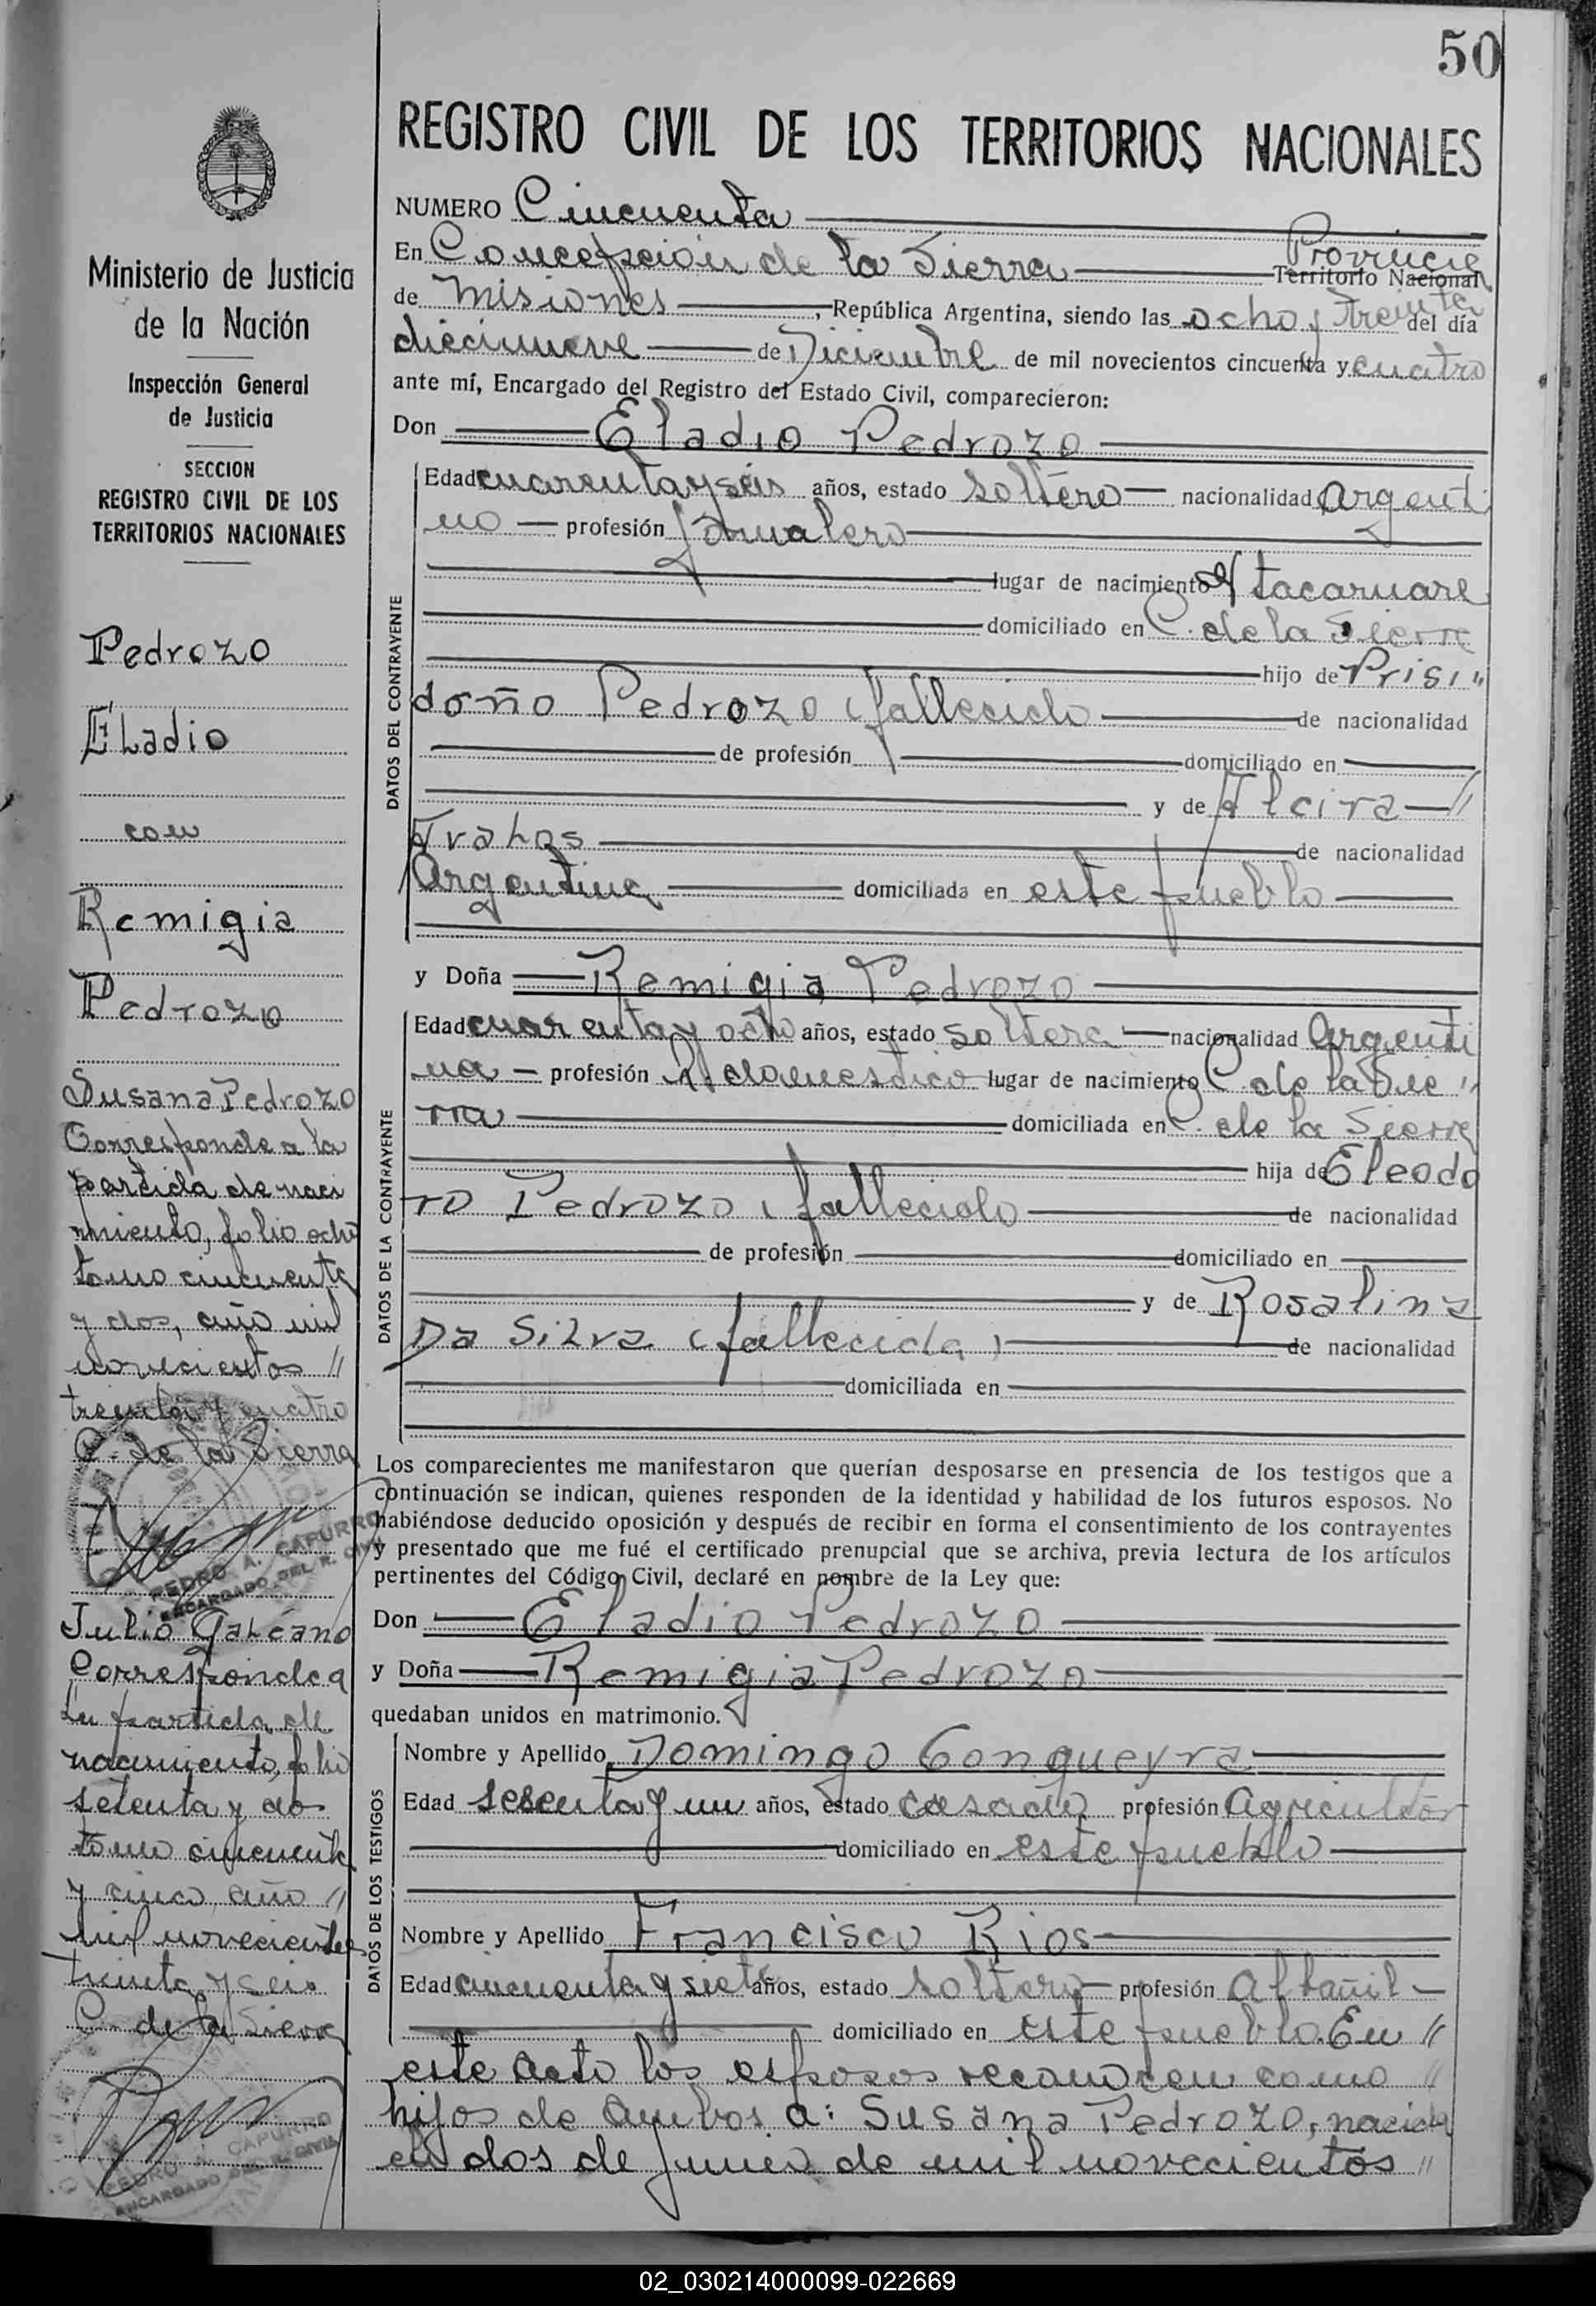 50
REGISTRO CIVIL DE LOS TERRITORIOS NACIONALES
NUMERO Cincuenta
En Concepción de la Sierra Provincia Territorio Nacional
de Misiones, República Argentina, siendo las ocho y treinta del día
diecinueve de Diciembre de mil novecientos cincuenta y cuatro
ante mí, Encargado del Registro del Estado Civil, comparecieron:
Don Eladio Pedrozo
DATOS DEL CONTRAYENTE
Edad cuarenta y seis años, estado soltero nacionalidad argenti
no profesión Jornalero
lugar de nacimiento Itacaruare
domiciliado en C. de la Sierra
hijo de Prisi "
doño Pedrozo (fallecido
de nacionalidad
de profesión domiciliado en
y de Alcira "
de nacionalidad
Argentina domiciliada en este pueblo
y Doña Remigia Pedrozo
DATOS DE LA CONTRAYENTE
Edad cuarenta y ocho años, estado soltera nacionalidad Argenti
na profesión Q. domestico lugar de nacimiento C. de la Sie "
rra domiciliada en C. de la Sierra
hija de Eleodo
ro Pedrozo (fallecido de nacionalidad
de profesión domiciliado en
y de Rosalina
Da Silva (fallecida) de nacionalidad
domiciliada en
Los comparecientes me manifestaron que querían desposarse en presencia de los testigos que a
continuación se indican, quienes responden de la identidad y habilidad de los futuros esposos. No
habiéndose deducido oposición y después de recibir en forma el consentimiento de los contrayentes
y presentado que me fué el certificado prenupcial que se archiva, previa lectura de los artículos
pertinentes del Código Civil, declaré en nombre de la Ley que:
Don Eladio Pedrozo
y Doña Remigia Pedrozo
quedaban unidos en matrimonio.
DATOS DE LOS TESTIGOS
Nombre y Apellido Domingo Congueyra
Edad sesenta y un años, estado casado profesión Agricultor
domiciliado en este pueblo
Nombre y Apellido Francisco Rios
Edad cincuenta y siete años, estado soltero profesión Albañil
domiciliado en este pueblo. En "
este acto los esposos reconocen como "
hijos de ambos a: Susana Pedrozo, nacida
el dos de Junio de mil novecientos "
Ministerio de Justicia
de la Nación
Inspección General
de Justicia
SECCION
REGISTRO CIVIL DE LOS
TERRITORIOS NACIONALES
Pedrozo
Eladio
con
Remigia
Pedrozo
Susana Pedrozo
Corresponde a la
partida de naci
miento, folio ocho
tomo cincuenta
y dos, año mil
novecientos "
treinta y cuatro
C. de la Sierra
PEDRO A. CAPURRO
ENCARGADO DEL R. CIVIL
Julio Galeano
Corresponde a
la partida de
nacimiento, folio
setenta y dos
tomo cincuenta
y cinco, año "
mil novecientos
treinta y seis
C. de la Sierra
PEDRO A. CAPURRO
ENCARGADO DEL R. CIVIL
02_030214000099-022669